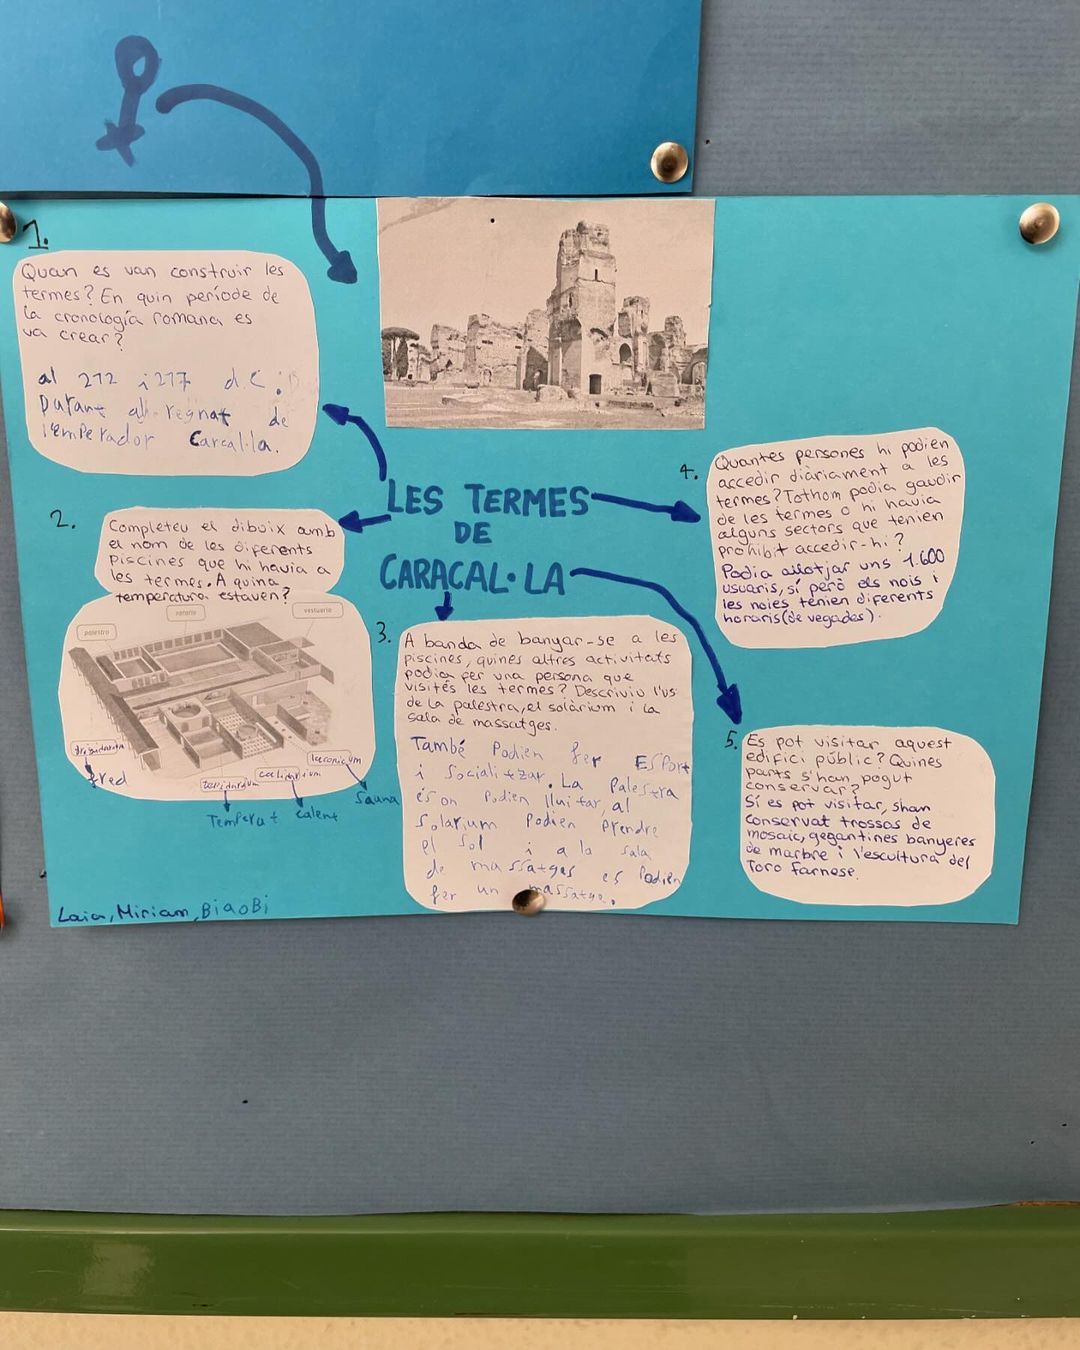 1.
Quan es van construir les
termes? En quin període de
la cronología romana es
va crear?
al 212 i 217 d.C :D
Durant al regnat de
l'emperador Carcal·la.
LES TERMES
DE
CARACAL·LA
2.
Completeu el dibuix amb
el nom de les diferents
piscines que hi havia a
les termes. A quina
temperatura estaven?
palestra
natatio
vestuario
frigidarium
fred
tepidarium
Temperat
caldarium
calent
laconicum
Sauna
3.
A banda de banyar-se a les
piscines, quines altres activitats
podia fer una persona que
visités les termes? Descriviu l'ús
de la palestra, el solàrium i la
sala de massatges.
També Podien fer ESPort
i Socialitzar. La Palestra
és on Podien lluitar, al
Solarium Podien Prendre
el Sol i a la sala
de massatges es Podien
fer un massatge.
4.
Quantes persones hi podien
accedir diàriament a les
termes? Tothom podia gaudir
de les termes o hi havia
alguns sectors que tenien
prohibit accedir-hi?
Podia allotjar uns 1.600
usuaris, sí però els nois i
les noies tenien diferents
horaris (de vegades).
5.
Es pot visitar aquest
edifici públic? Quines
parts s'han pogut
conservar?
Sí es pot visitar, shan
conservat trossos de
mosaic, gegantines banyeres
de marbre i l'escultura del
Toro farnese.
Laia, Miriam, BiaoBi